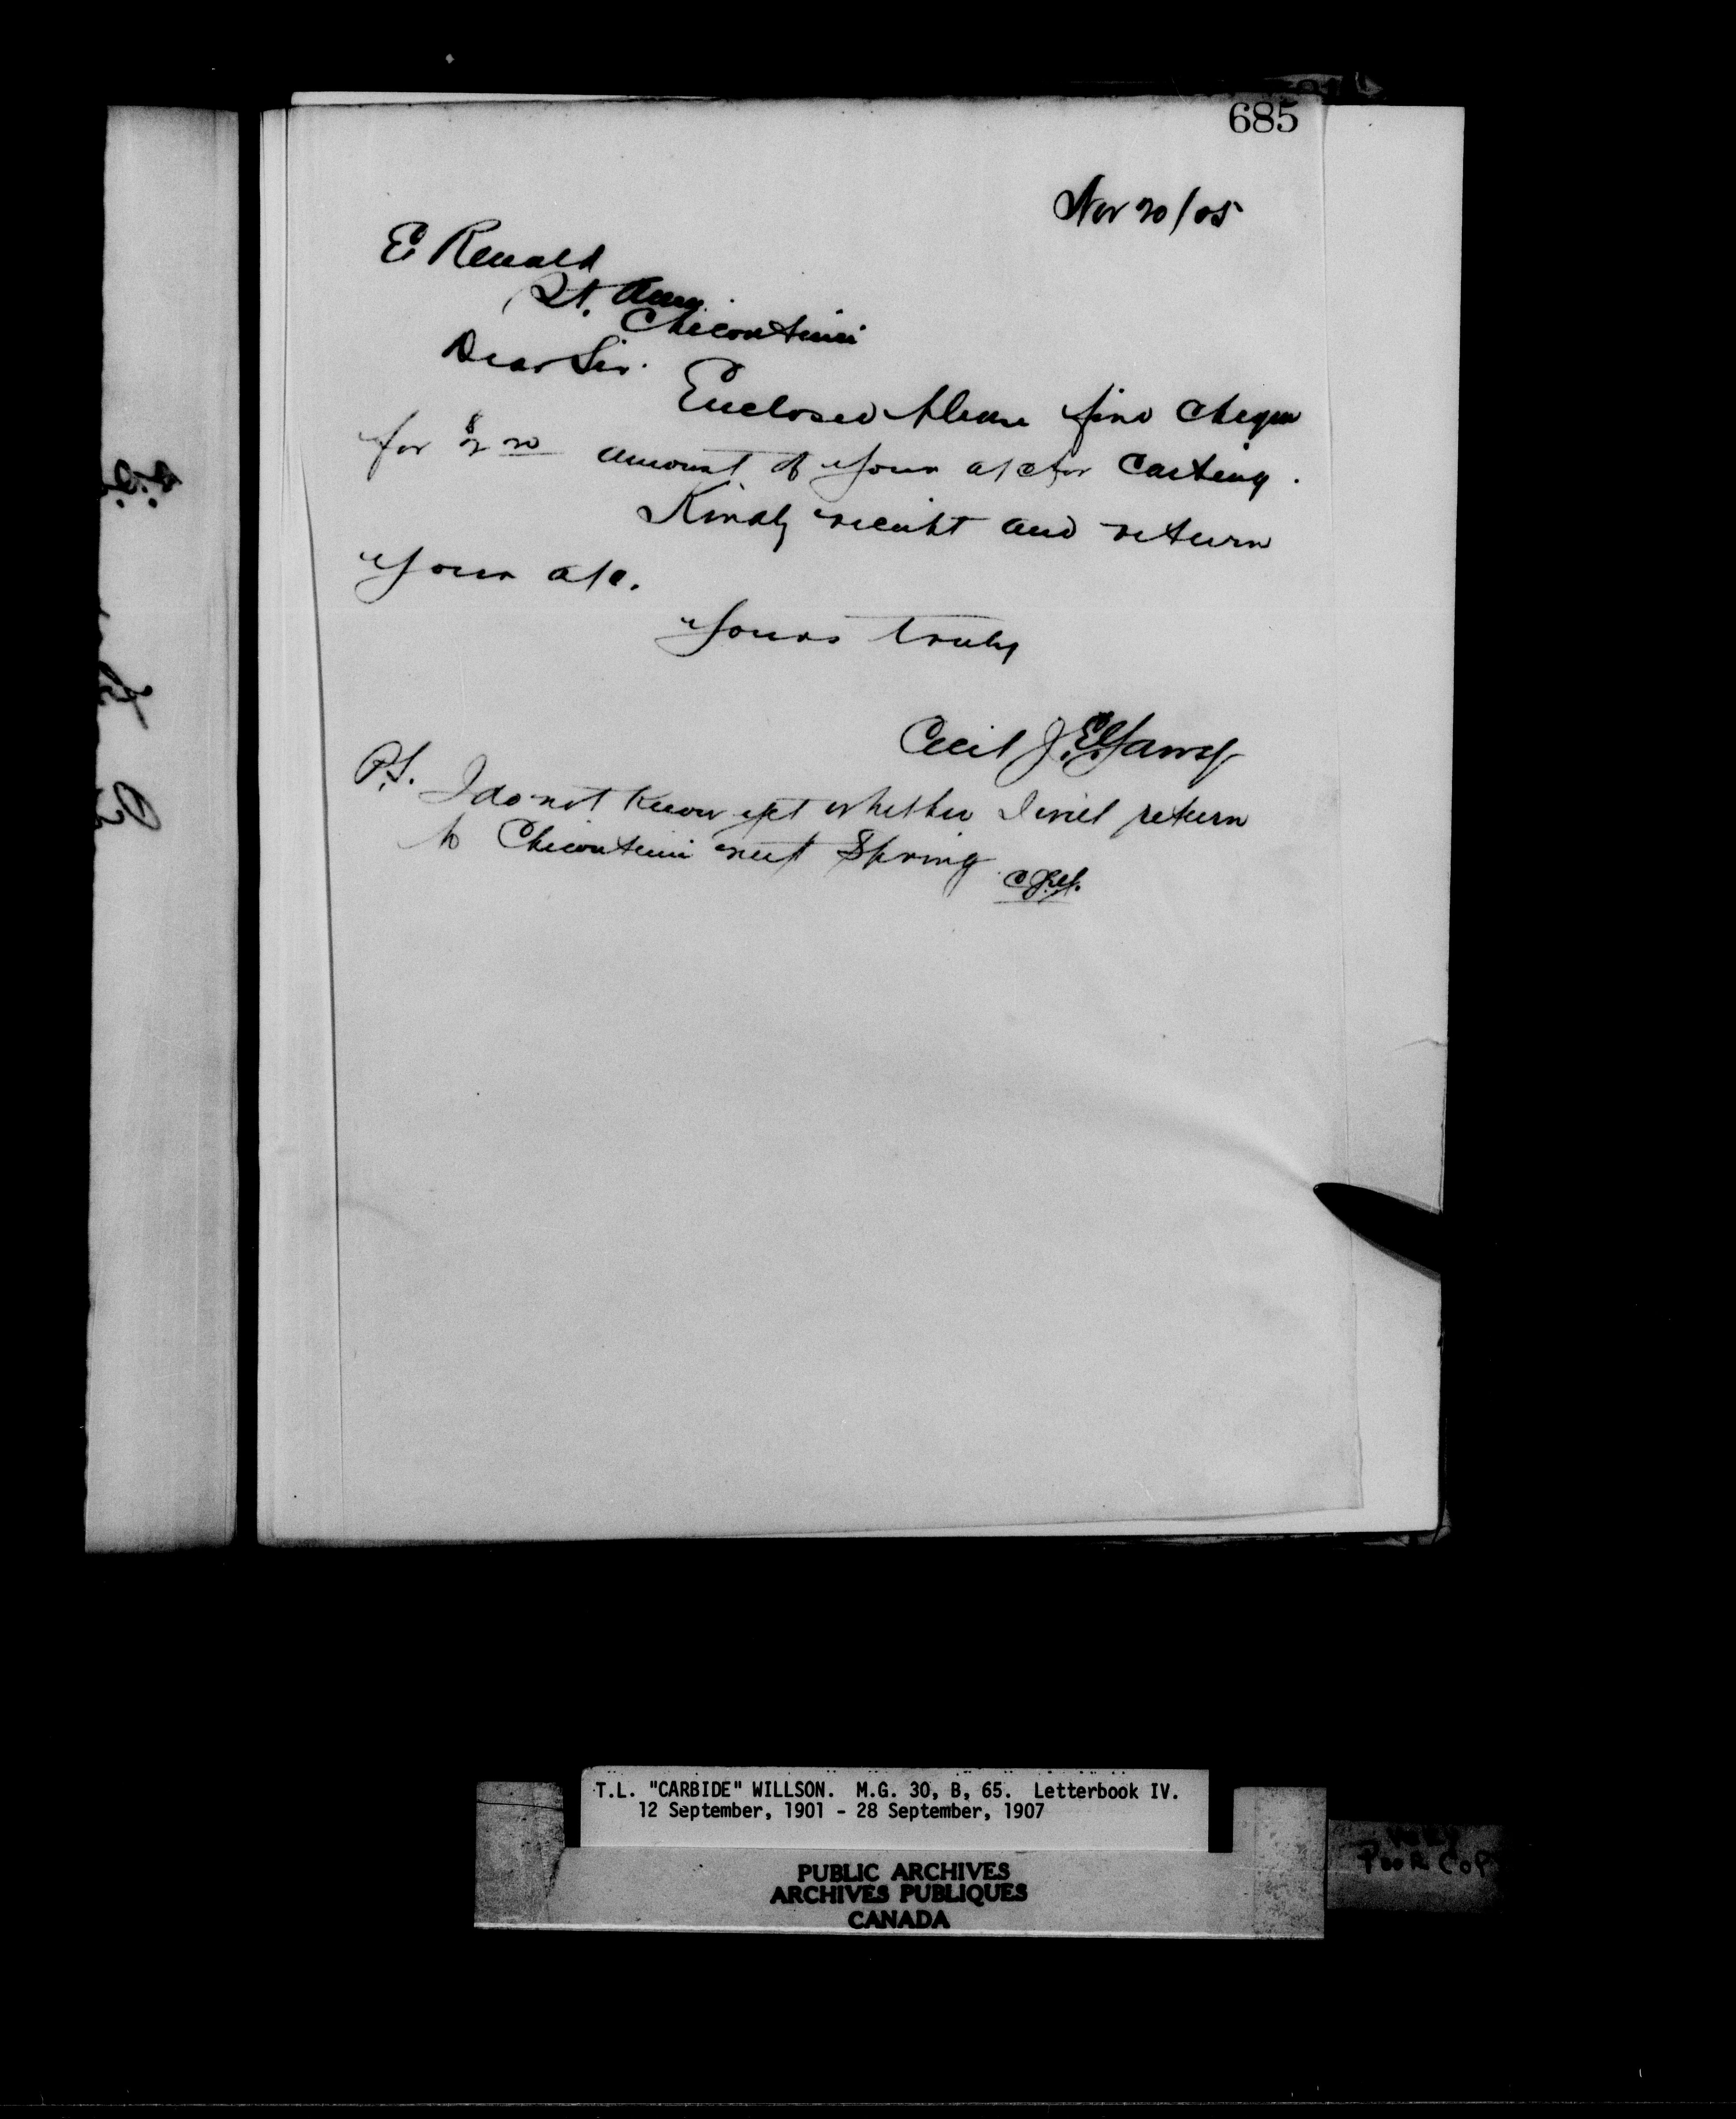 685
Nov 20/05
E Renald
St. Anne
Chicoutimi
Dear Sir.
Enclosed please find cheque
for $2 20 amount of your a/c for carting.
Kindly receipt and return
your a/c.
Yours truly
Cecil J.
P.S. I do not know yet whether I will return
to Chicoutimi next Spring
T.L. "CARBIDE" WILLSON. M.G. 30, B, 65. Letterbook IV.
12 September, 1901 - 28 September, 1907
PUBLIC ARCHIVES
ARCHIVES PUBLIQUES
CANADA
VERY
POOR COP